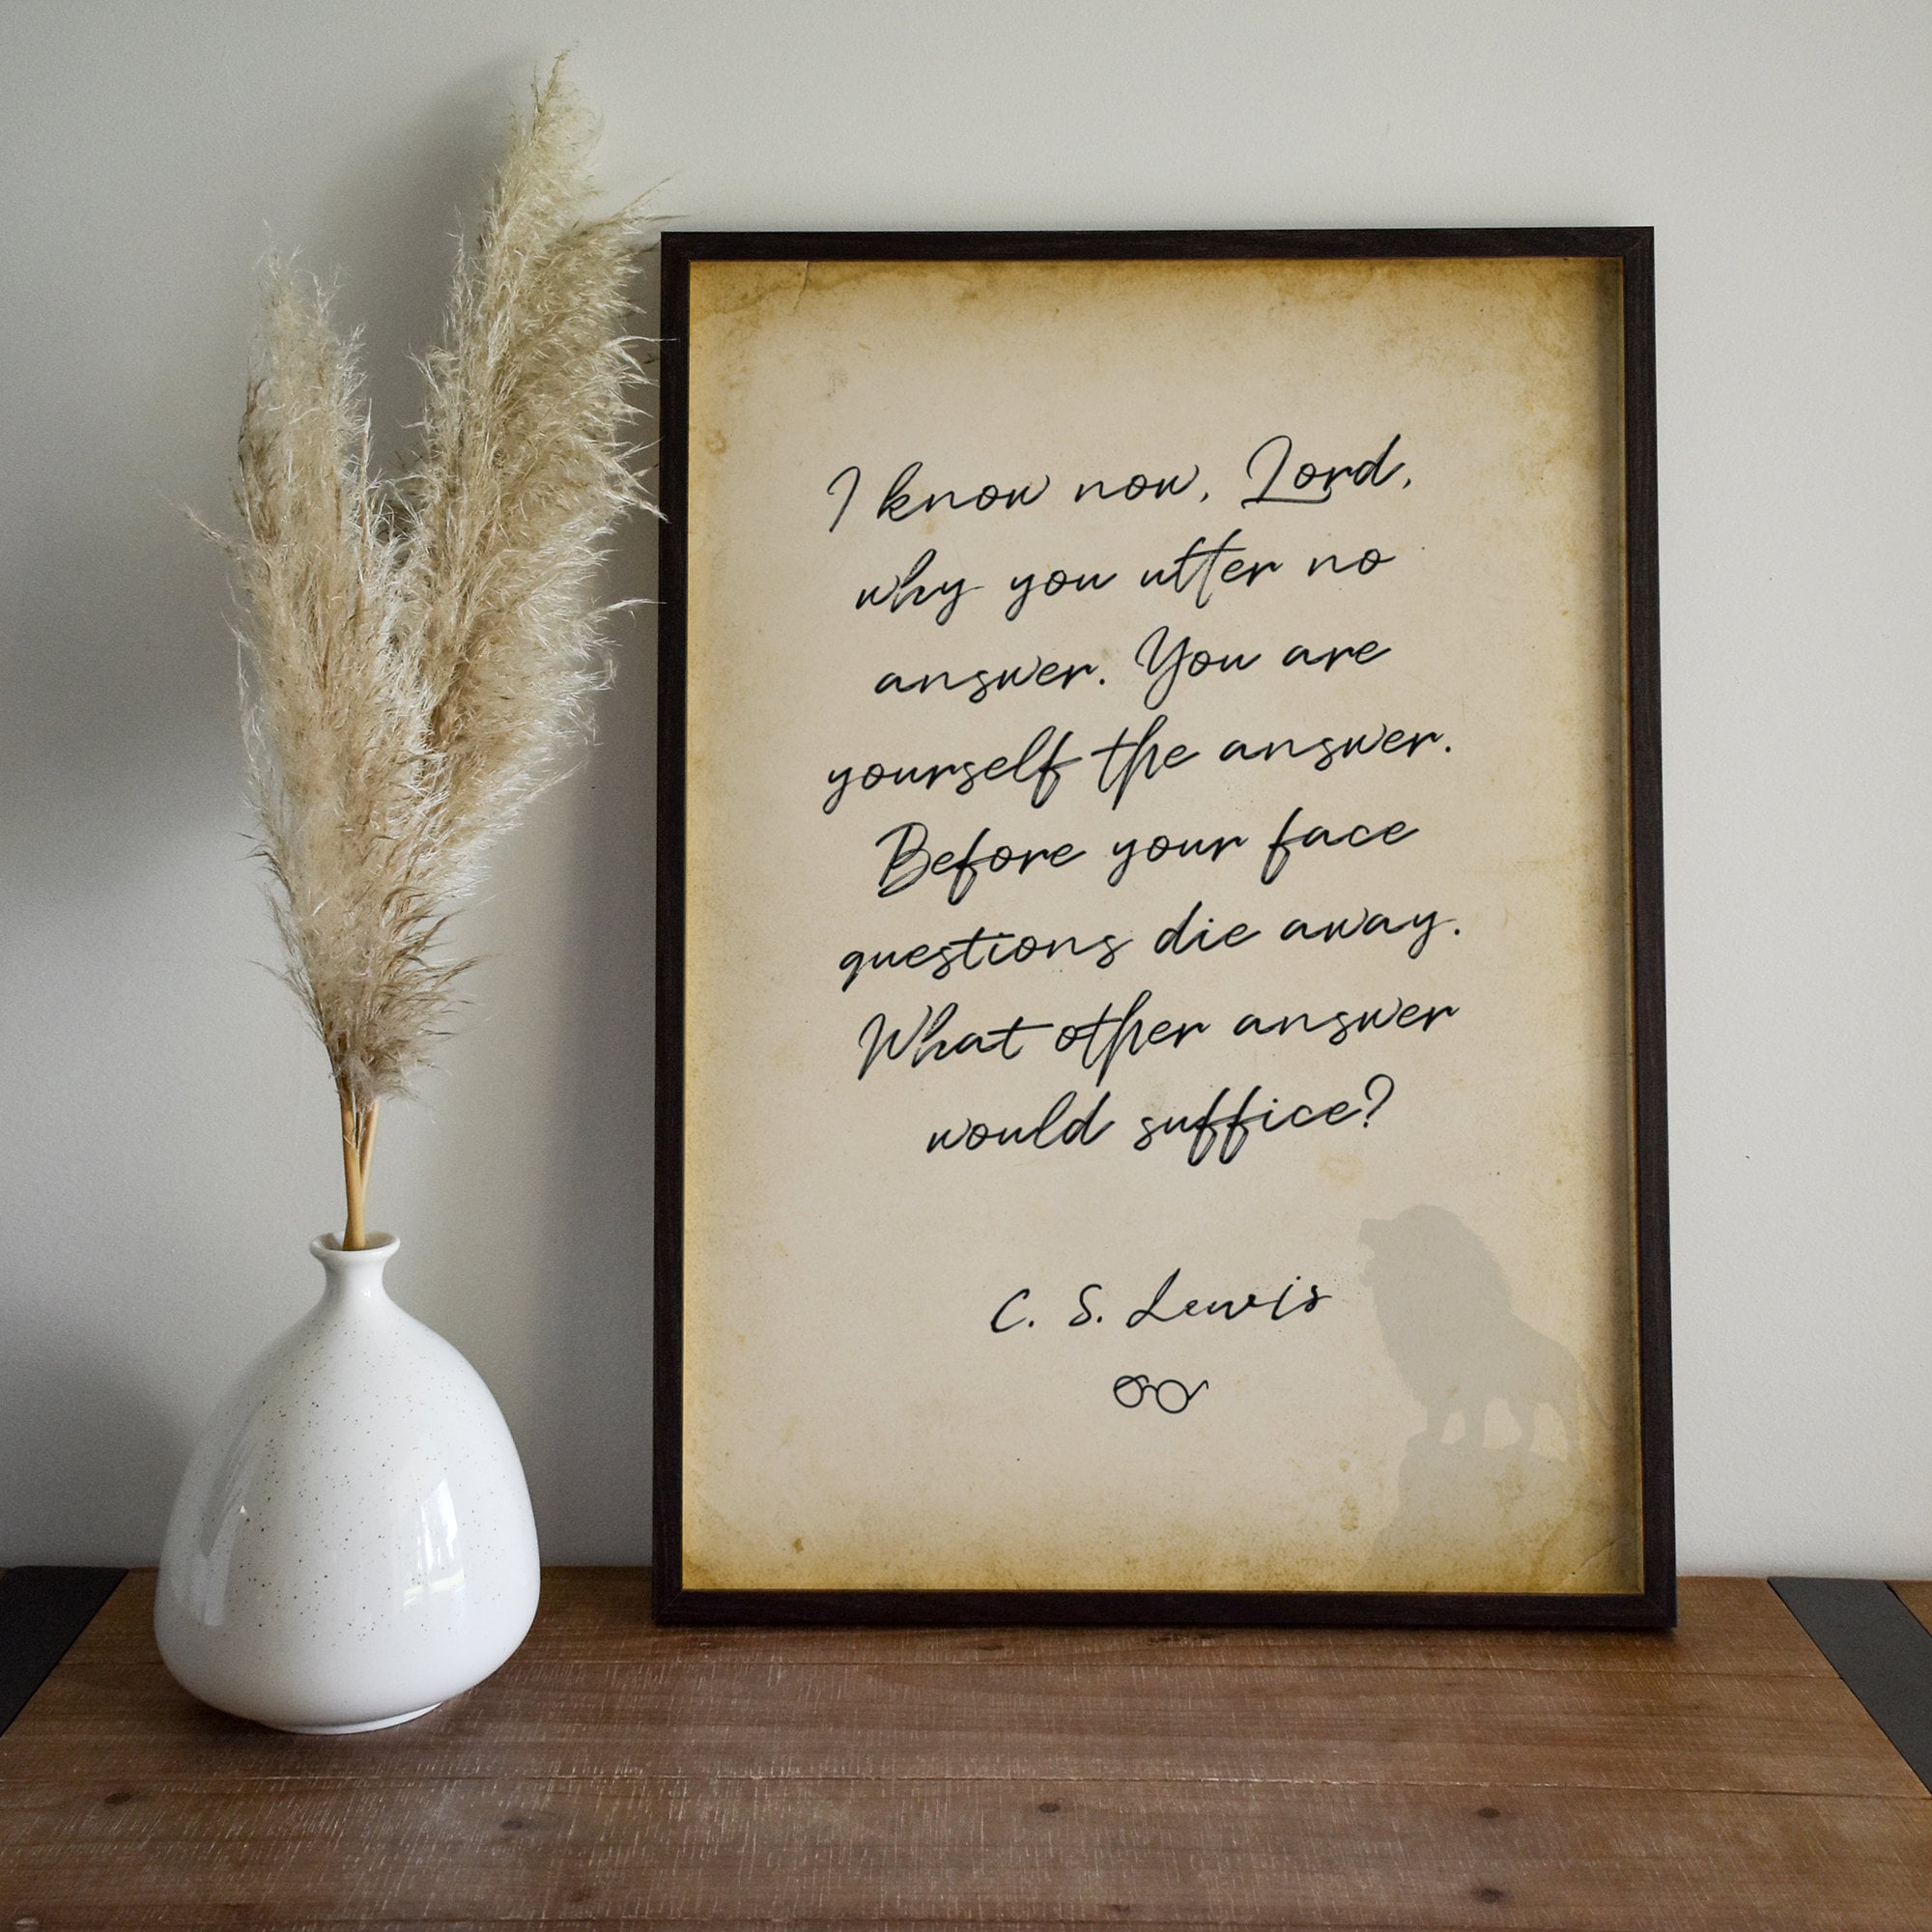 I know now, Lord,
why you utter no
answer. You are
yourself the answer.
Before your face
questions die away.
What other answer
would suffice?
C. S. Lewis